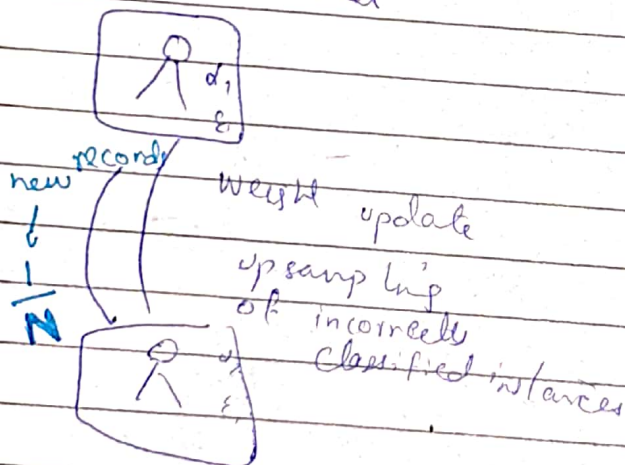 α₁
ε₁
records
new
↓
1
N
weight update
upsampling
of incorrectly
classified instances
α₂